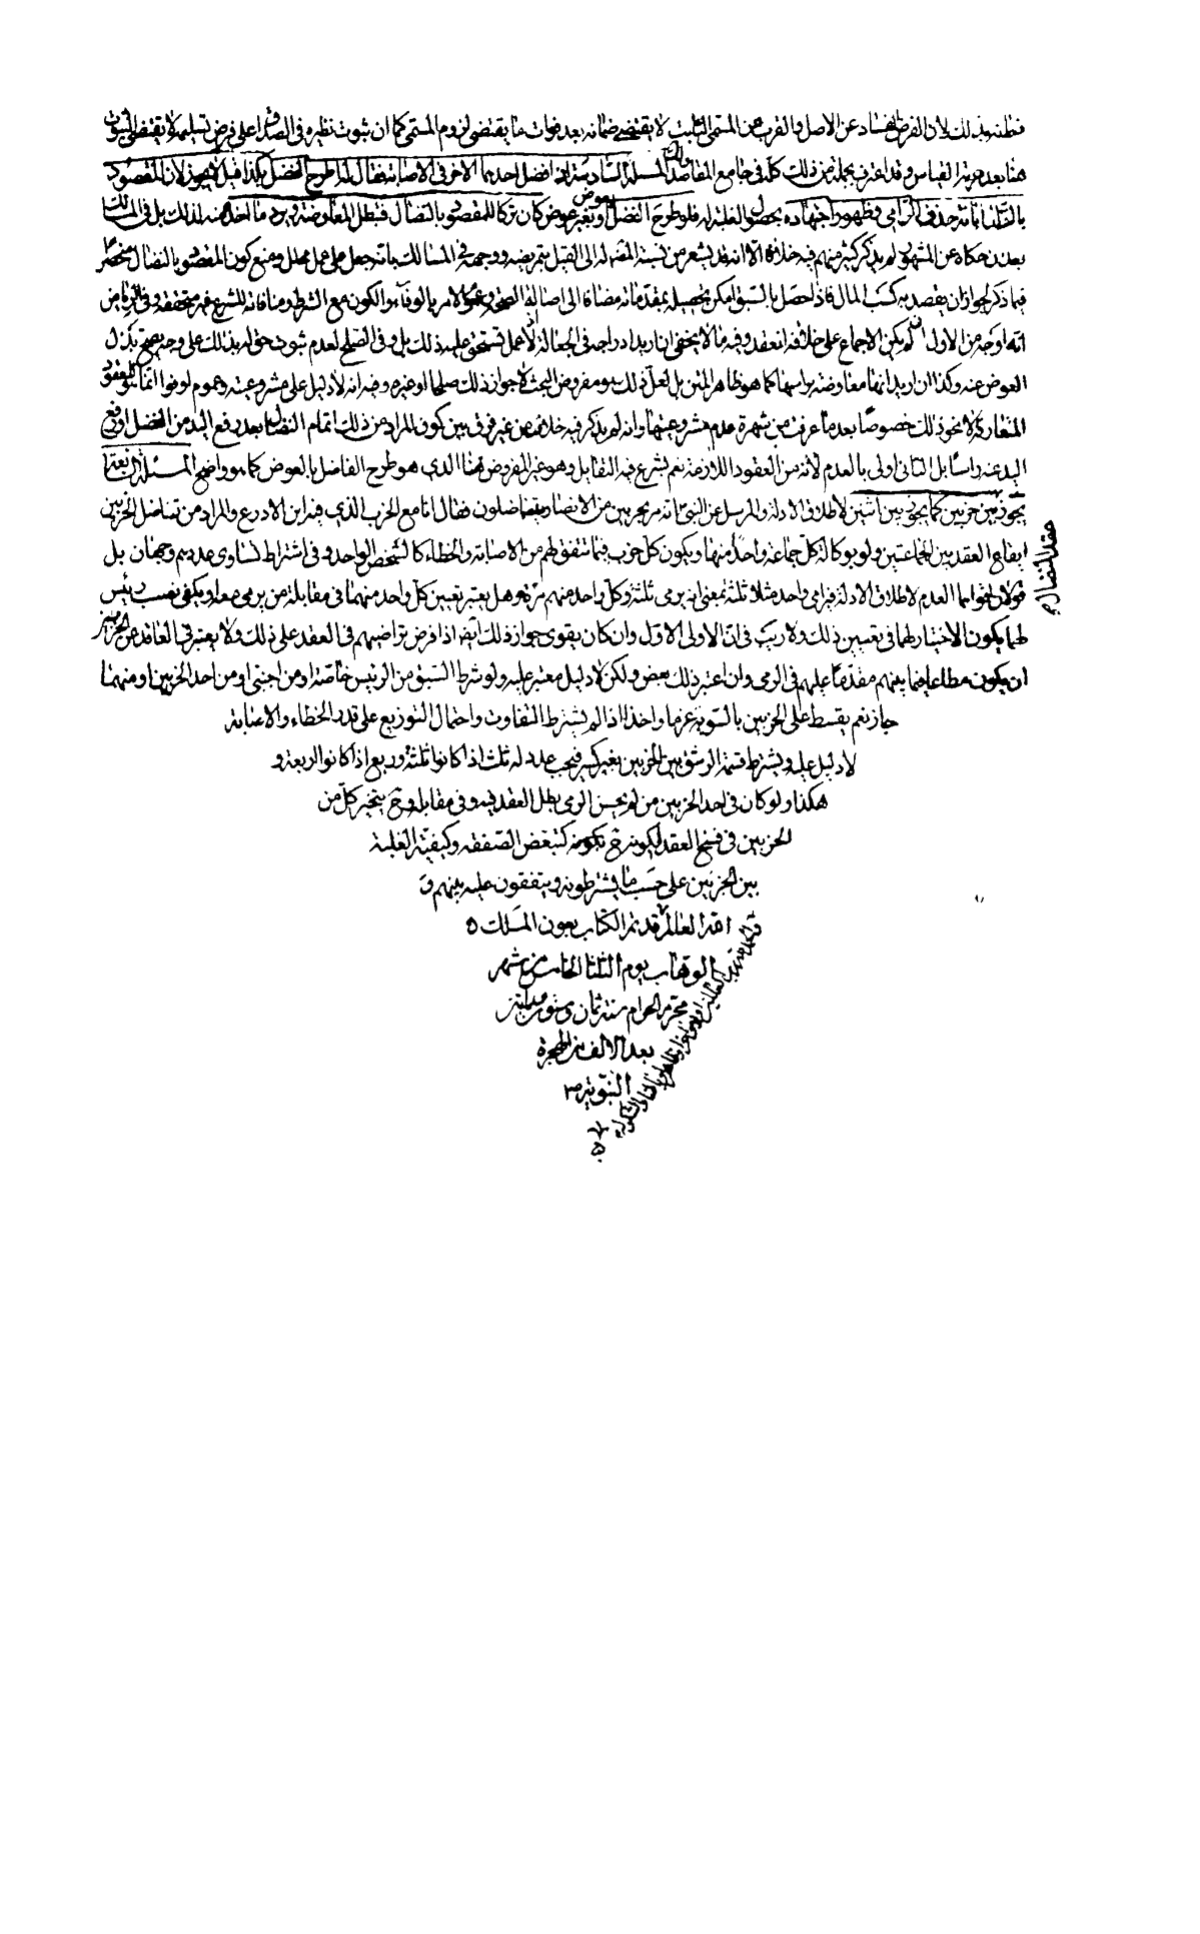 فظنوا بذلك لان الفرض الفساد عن الاصل والقرب من المسمى الثابت لا يقتضى ضمانه بعد فوات ما يقتضى لزوم المسمى كما ان ثبوت نظيره فى الصداق على فرض تسليمه لا يقتضى الثبوت
هنا بعد حرمة القياس وقد اعترف بجملة من ذلك كله فى جامع المقاصد المسئلة السادسة اذا فضل احدهما الاخر فى الاصابة فقال له اطرح الفضل بكذا قيل لا يجوز لان المقصود
بالنضال ابانة حذق الرامى وظهور اجتهاده بحصول الغلبة له فلو طرح الفضل بعوض كان تركا للمقصود بالنضال فتبطل المعاوضة ويرد ما اخذ منه لذلك بل فى المسالك
بعد ان حكاه عن المشهور لم يذكر كثير منهم فيه خلافا الا انه قد يشعر من نسبة المصنف له الى القيل بتمريضه ووجهه فى المسالك بانه جعل على عمل محلل ومنع كون المقصود بالنضال منحصرا
فيما ذكر لجواز ان يقصد به كسب المال فاذا حصل بالسبق امكن تحصيله بمقدماته مضافا الى اصالة الصحة وعموم الامر بالوفاء والكون مع الشرط ومنافاته للشرع غير متحققة وفى الرياض
انه اوجه من الاول ان لم يكن الاجماع على خلافه انعقد وفيه ما لا يخفى ان اريد ادراجه فى الجعالة اذ لا عمل تستحق عليه ذلك بل وفى الصلح لعدم ثبوت حق له بذلك على وجه يصح بذل
العوض عنه وكذا ان اريد انها معاوضة براسها كما هو ظاهر المتن بل لعل ذلك هو مفروض البحث لا جواز ذلك صلحا او غيره وفيه انه لا دليل على مشروعيته وعموم اوفوا انما هو للعقود
المتعارفة لا نحو ذلك خصوصا بعد ما عرفت من شهرة عدم مشروعيتها وانه لم يذكر فيه خلاف من غير فرق بين كون المراد من ذلك اتمام النضال بعد رفع اليد من الفضل او رفع
اليد عنه راسا بل الثانى اولى بالعدم لانه من العقود اللازمة نعم يشرع فيه التقايل وهو غير المفروض هنا الذى هو طرح الفاضل بالعوض كما هو واضح المسئلة الرابعة
يجوز بين حزبين كما يجوز بين اثنين لاطلاق الادلة والمرسل عن النبى ص انه مر بحزبين من الانصار يتناضلون فقال انا مع الحزب الذى فيه ابن الادرع والمراد من تناضل الحزبين
ايقاع العقد بين الجماعتين ولو بوكالة كل جماعة واحدا منها ويكون كل حزب فيما يتفق لهم من الاصابة والخطاء كالشخص الواحد وفى اشتراط تساوى عددهم وجهان بل
قولان اقواهما العدم لاطلاق الادلة فيرامى واحد مثلا ثلثة بمعنى انه يرمى ثلثة وكل واحد منهم مرة وهل يعتبر تعيين كل واحد منهما فى مقابلة من يرمى معه او يكفى نصب رئيس
لهما يكون الاختيار لهما فى تعيين ذلك ولا ريب فى ان الاولى الاول وان كان يقوى جواز ذلك ايضا اذا فرض تراضيهم فى العقد على ذلك ولا يعتبر فى العاقد من الحزبين
ان يكون مطاعا فيما بينهم مقدما عليهم فى الرمى وان اعتبر ذلك بعض ولكن لا دليل معتبر عليه ولو شرط السبق من الرئيس خاصة او من اجنبى او من احد الحزبين او منهما
جاز نعم يقسط على الحزبين بالسوية غرما واخذا اذا لم يشترط التفاوت واحتمال التوزيع على قدر الخطاء والاصابة
لا دليل عليه ويشترط قسمة الرشق بين الحزبين بغير كسر فيجب عدد له ثلث اذا كانوا ثلثة وربع اذا كانوا اربعة و
هكذا ولو كان فى احد الحزبين من لم يحسن الرمى بطل العقد فيه وفى مقابله وح يتخير كل من
الحزبين فى فسخ العقد لكونه ح كتبعض الصفقة وكيفية الغلبة
بين الحزبين على حسب ما يشترطونه ويتفقون عليه بينهم و
الله العالم قد تم الكتاب بعون الملك
الوهاب يوم الثلثا الخامس من شهر
محرم الحرام سنة ثمان و
بعد الالف من الهجرة
النبوية
عقد النضال